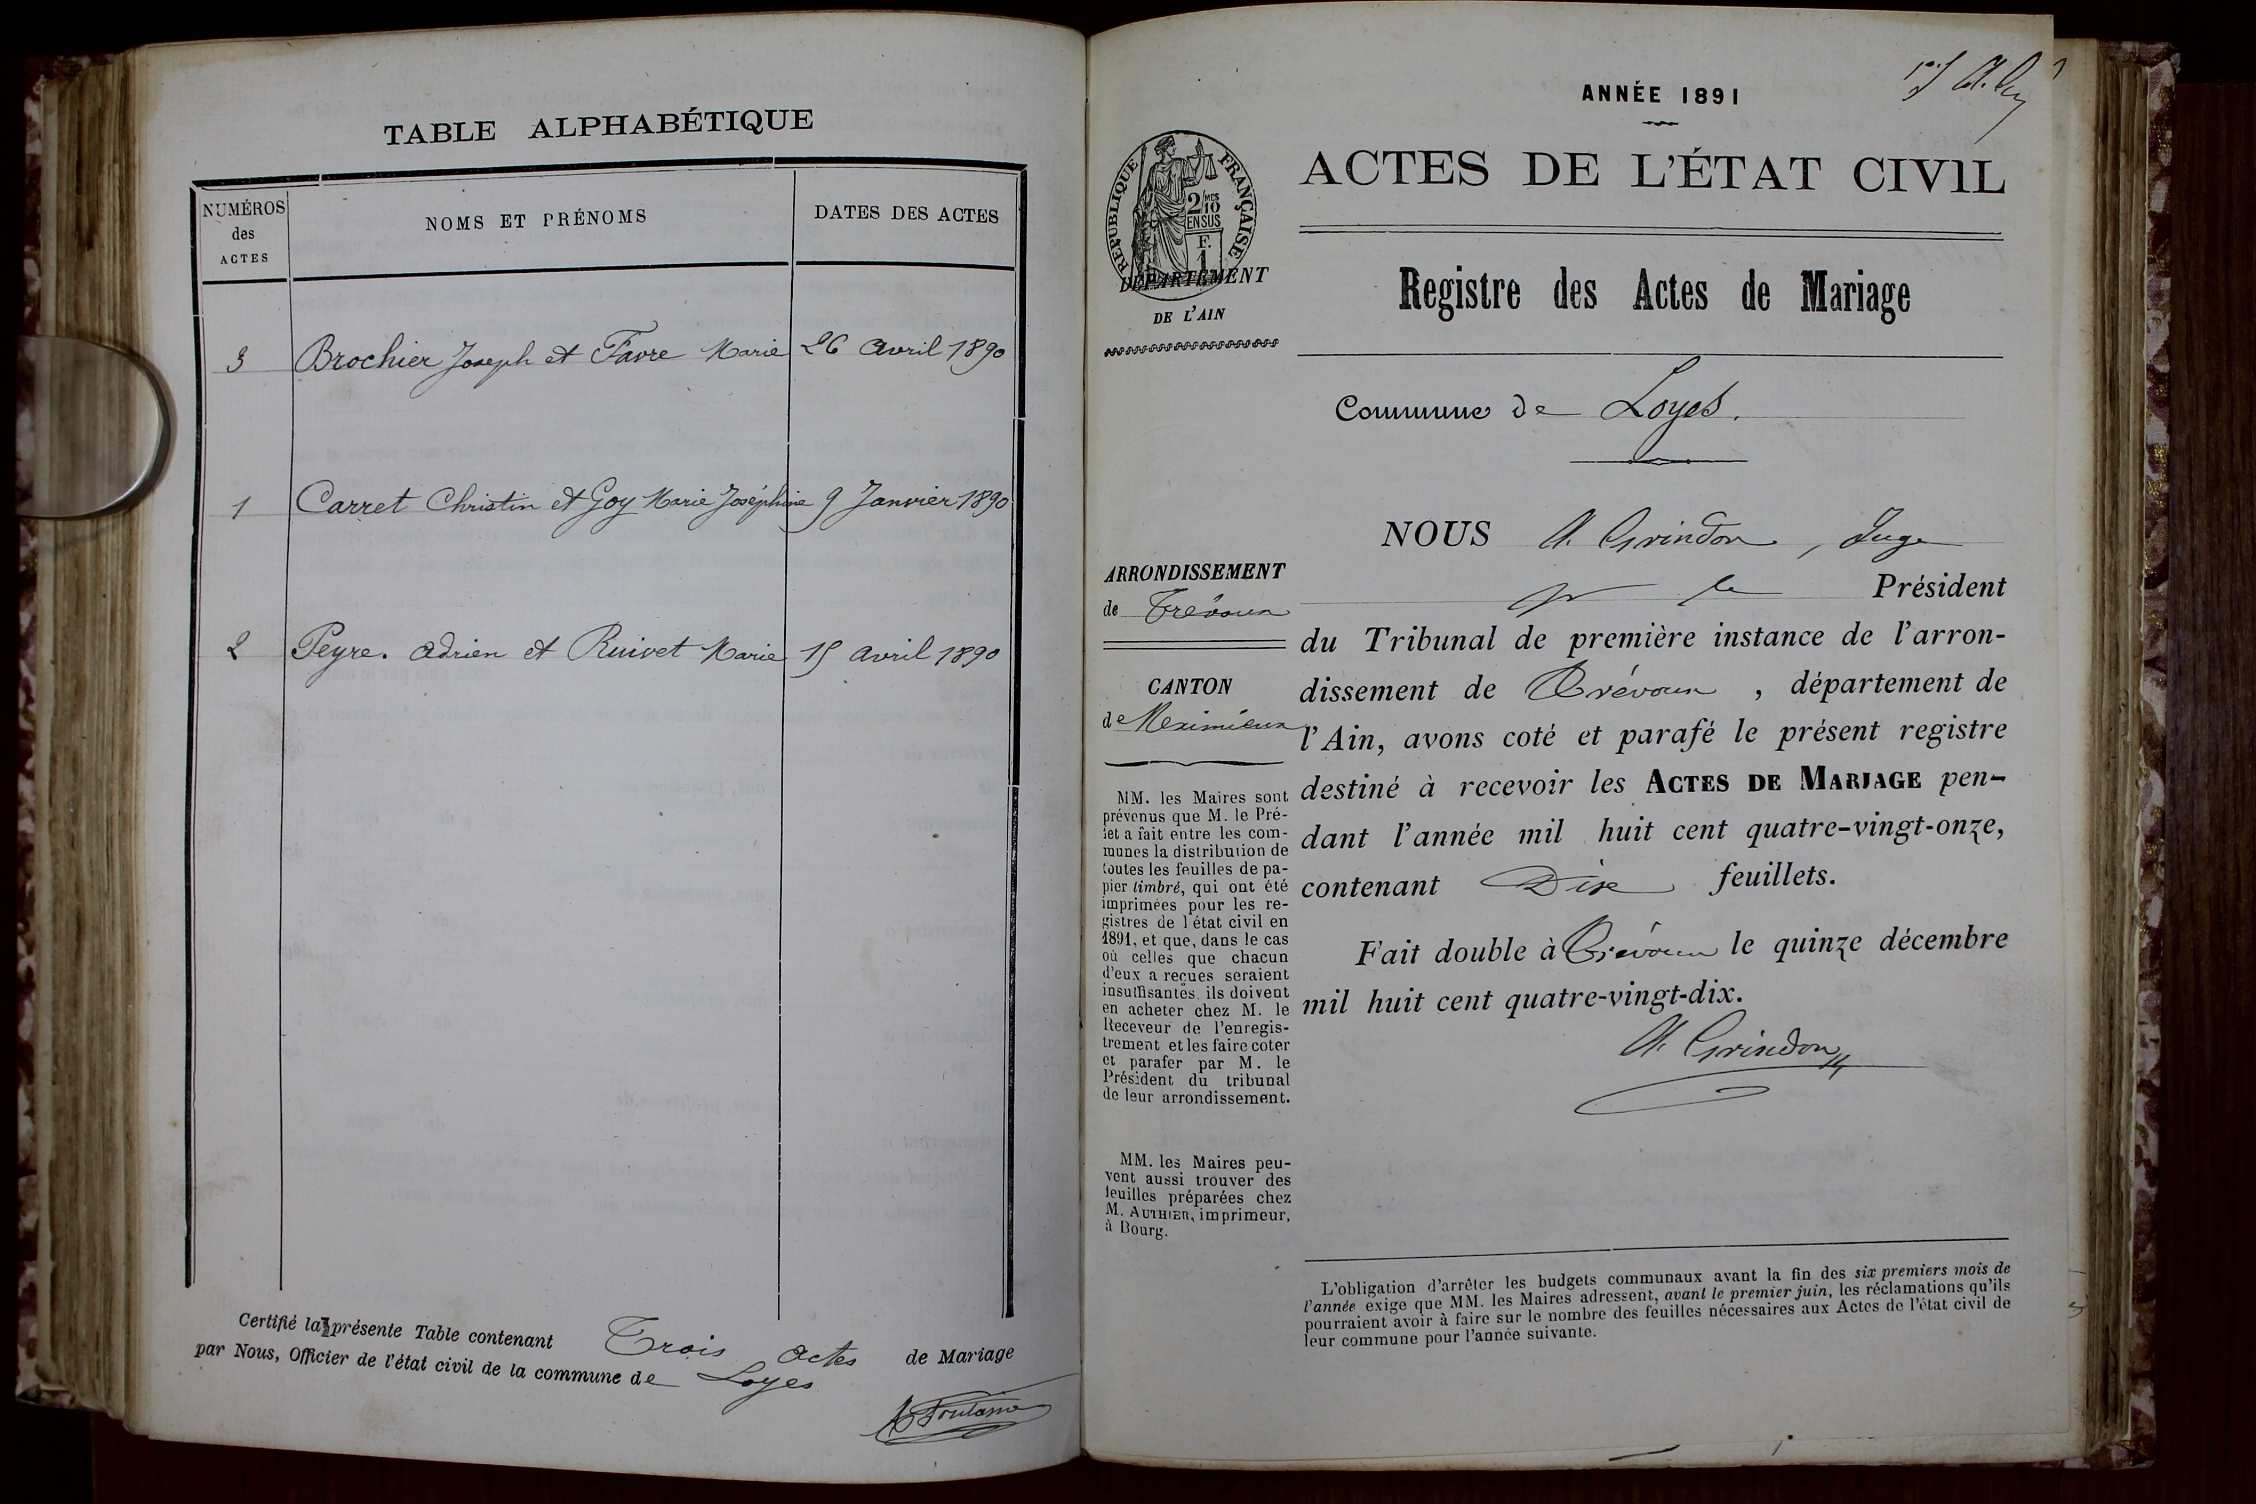 TABLE ALPHABÉTIQUE
NUMÉROS
des
ACTES
NOMS ET PRÉNOMS
DATES DES ACTES
3 Brochier Joseph et Favre Marie 26 Avril 1890
1 Carret Christin et Goy Marie Joséphine 9 Janvier 1890
2 Peyre. Adrien et Ruivet Marie 15 Avril 1890
Certifié la présente Table contenant Trois Actes de Mariage
par Nous, Officier de l'état civil de la commune de Loyes
ANNÉE 1891
ACTES DE L'ÉTAT CIVIL
RÉPUBLIQUE FRANÇAISE
2/10 MES
EN SUS
F.
1
DÉPARTEMENT
DE L'AIN
Registre des Actes de Mariage
Commune de Loyes.
ARRONDISSEMENT
de Trévoux
CANTON
de Meximieux
MM. les Maires sont
prévenus que M. le Pré-
fet a fait entre les com-
munes la distribution de
toutes les feuilles de pa-
pier timbré, qui ont été
imprimées pour les re-
gistres de l'état civil en
1891, et que, dans le cas
où celles que chacun
d'eux a reçues seraient
insuffisantes, ils doivent
en acheter chez M. le
Receveur de l'enregis-
trement et les faire coter
et parafer par M. le
Président du tribunal
de leur arrondissement.
MM. les Maires peu-
vent aussi trouver des
feuilles préparées chez
M. AUTHIER, imprimeur,
à Bourg.
NOUS A. Grindon, Juge
pr le Président
du Tribunal de première instance de l'arron-
dissement de Trévoux, département de
l'Ain, avons coté et parafé le présent registre
destiné à recevoir les ACTES DE MARIAGE pen-
dant l'année mil huit cent quatre-vingt-onze,
contenant Dix feuillets.
Fait double à Trévoux le quinze décembre
mil huit cent quatre-vingt-dix.
A. Grindon
L'obligation d'arrêter les budgets communaux avant la fin des six premiers mois de
l'année exige que MM. les Maires adressent, avant le premier juin, les réclamations qu'ils
pourraient avoir à faire sur le nombre des feuilles nécessaires aux Actes de l'état civil de
leur commune pour l'année suivante.